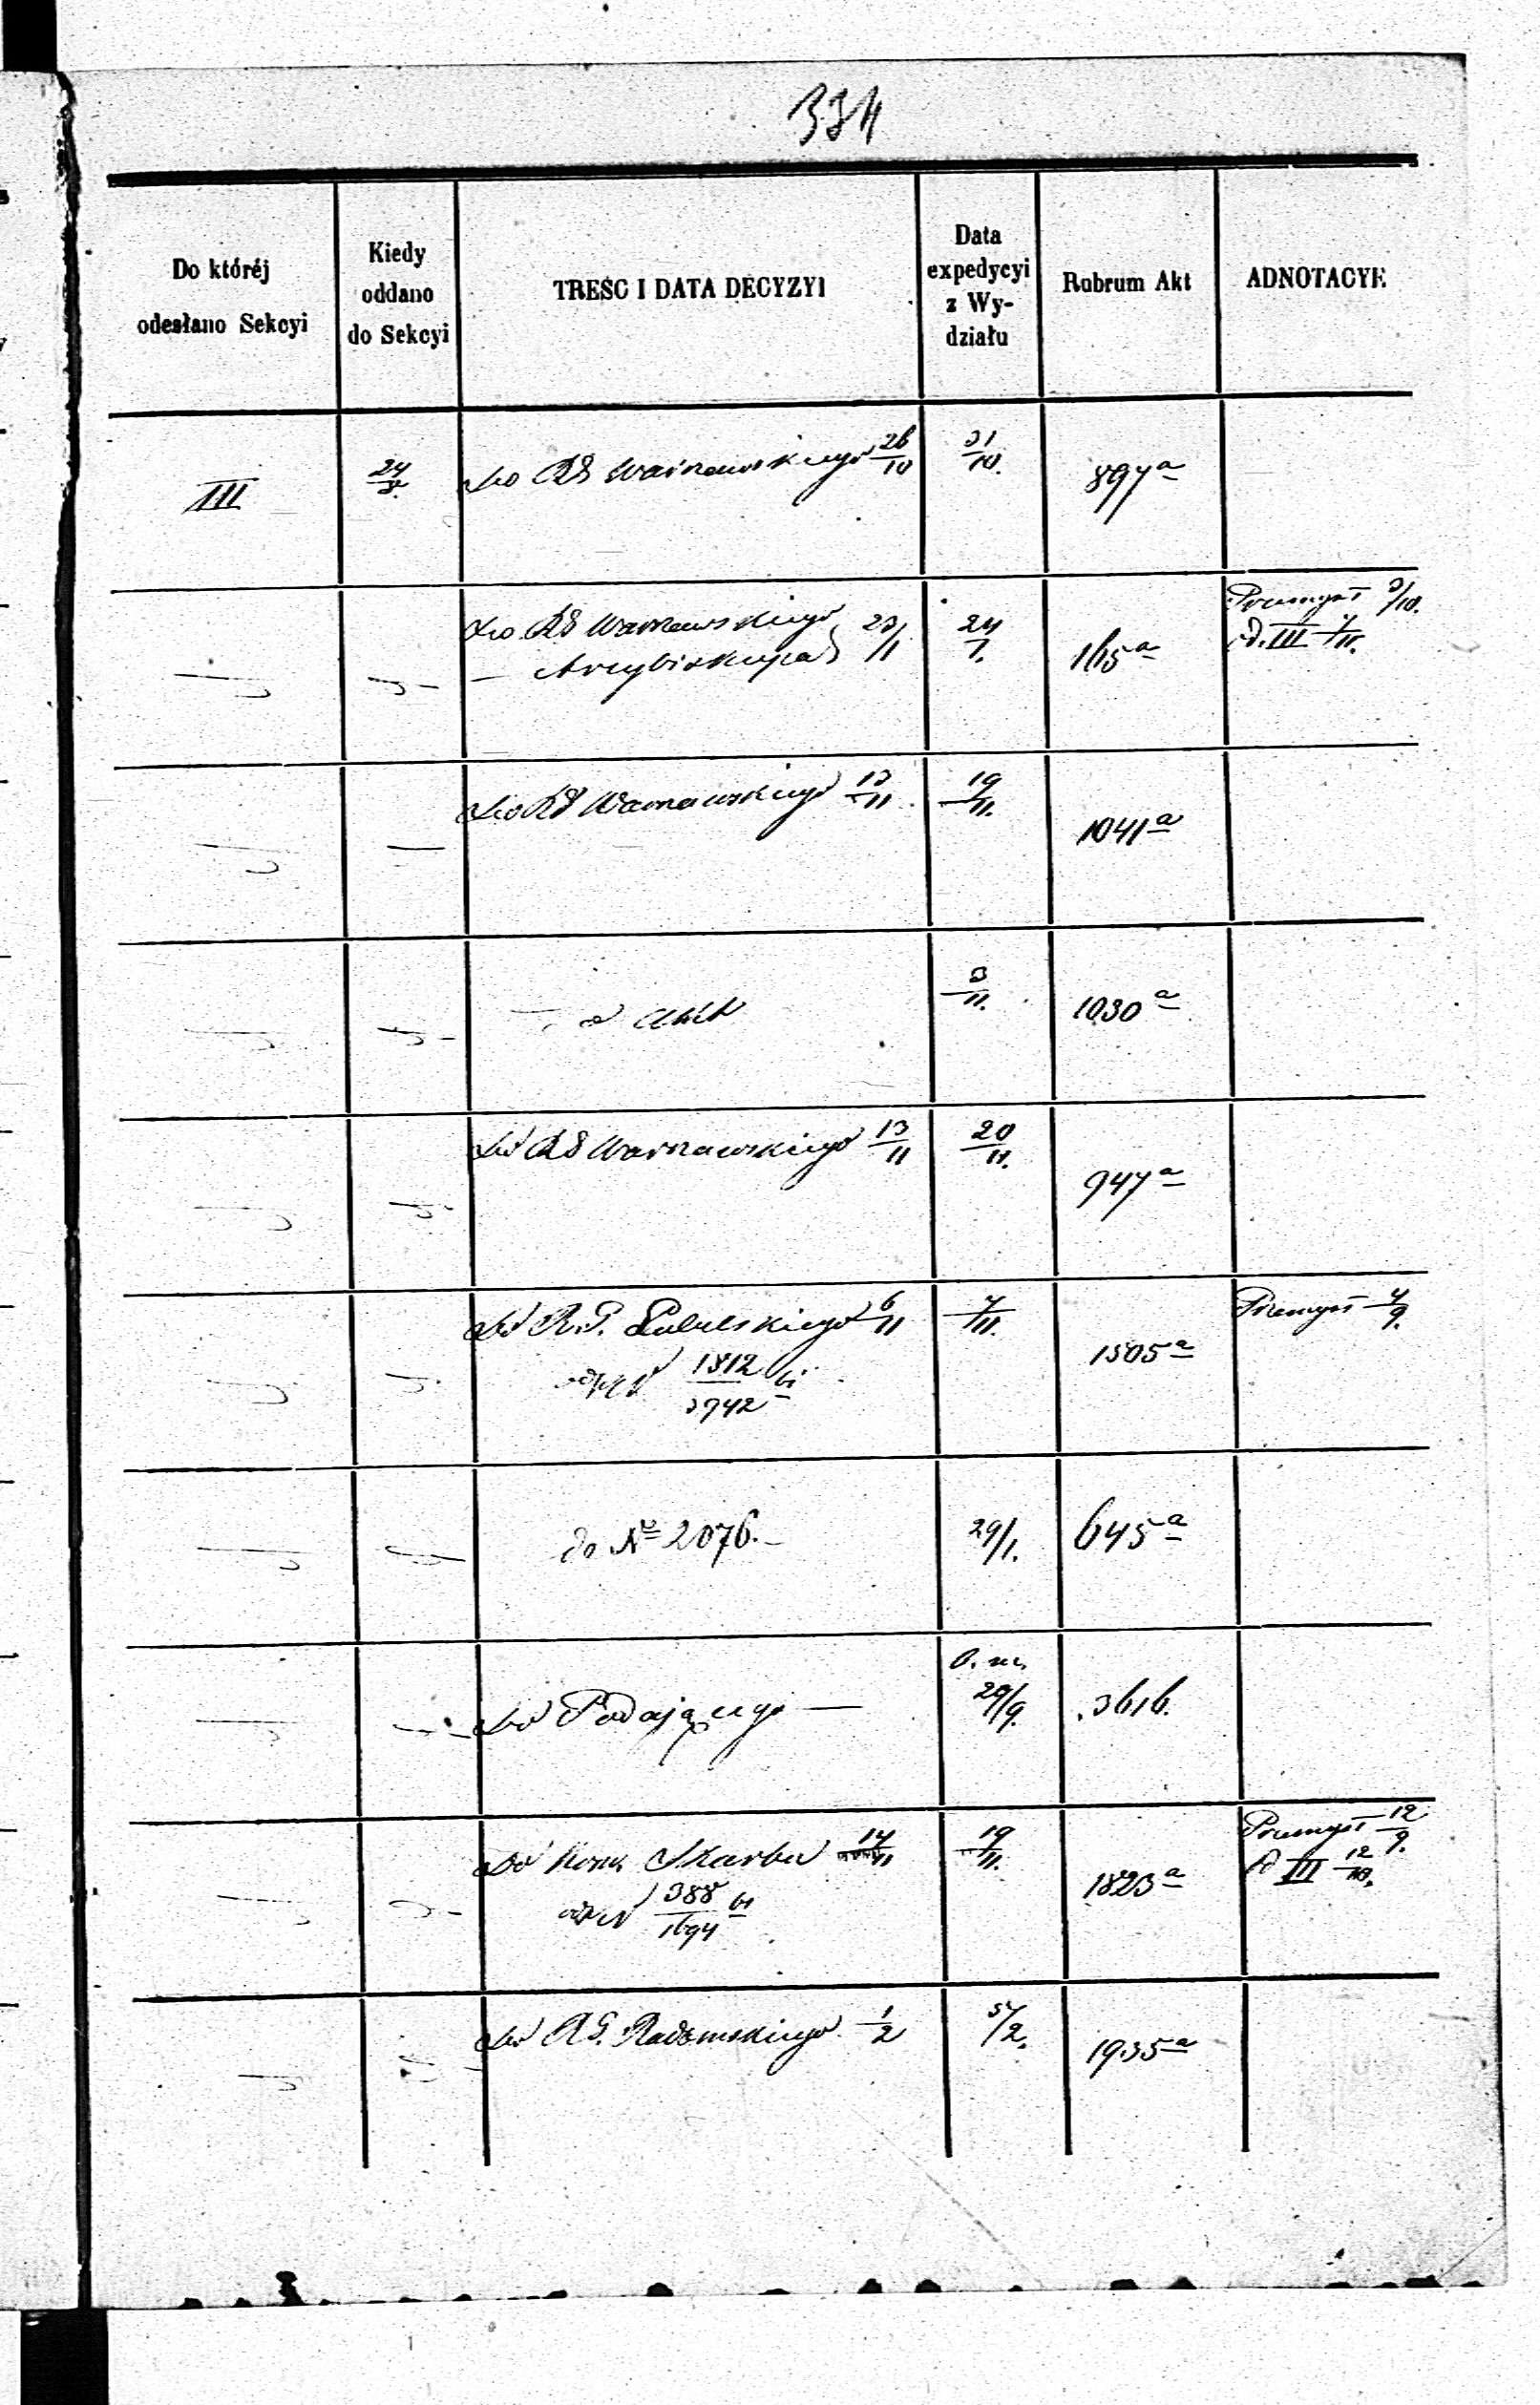 334
Do któréj
odesłano Sekcyi
Kiedy
oddano
do Sekcyi
TREŚĆ I DATA DECYZYI
Data
expedycyi
z Wy-
działu
Rubrum Akt
ADNOTACYE
III
24/8.
Do RG Warszawskiego 26/10
31/10.
897 a
Do RG Warszawskiego
— Arcybiskupa } 23/1
24/1.
1115 a
Przemysł 3/10.
d. III 7/11.
Do RG Warszawskiego 13/11
19/11.
1041 a
Akt
3/11.
1030 a
Do RG Warszawskiego 13/11
20/11.
947 a
Do R.G. Lubelskiego 6/11
1812/3742
7/11.
1505 a
Przemysł 4/9.
do No 2076.—
29/1.
645 a
Do Podającego —
29/9.
3616.
Do Kom. Skarbu 14/11
388/1694
19/11.
1823 a
Przemysł 12/9.
d III 12/10.
Do RG. Radomskiego 1/2
5/2.
1935 a